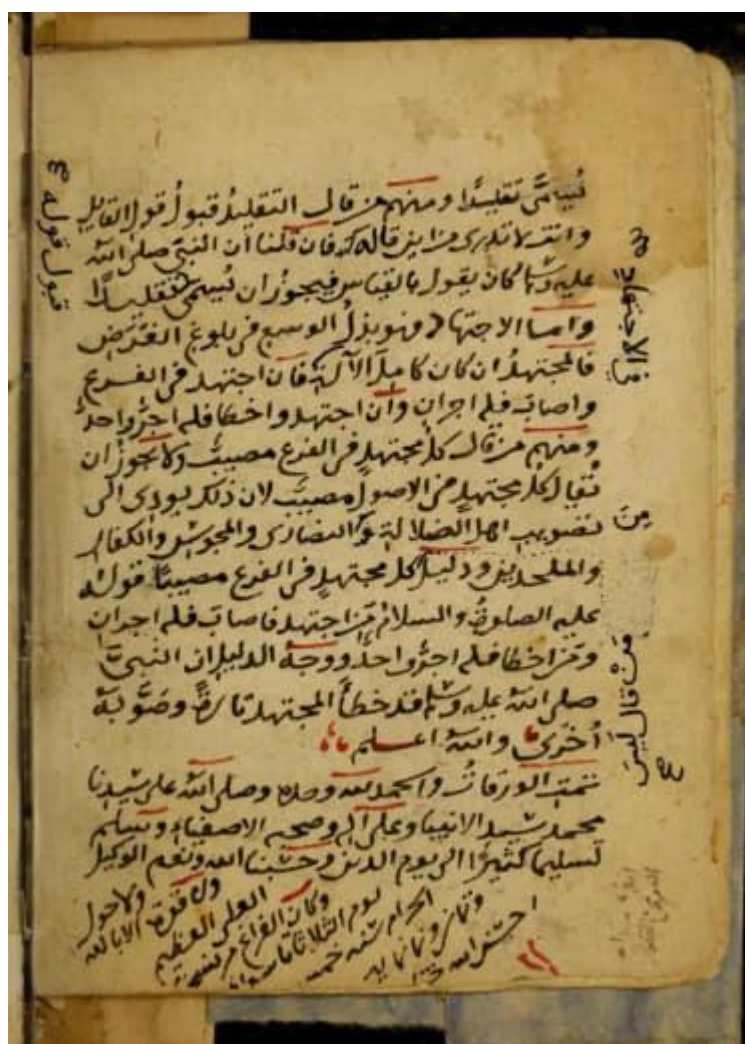 يسمى تقليدًا ومنهم من قال التقليدُ قبولُ قولِ القايلِ
وانت لا تدرى من اين قاله فان قلنا ان النبي صلى الله
عليه وسلم كان يقول بالقياس فيجوزُ ان يُسمى تقليدًا
واما الاجتهاد فهو بذلُ الوسع في بلوغ الغرض
فالمجتهدُ ان كان كاملَ الآلة فان اجتهد فى الفرع
واصابَ فله اجران وان اجتهد واخطا فله اجرٌ واحدٌ
ومنهم من قال كل مجتهدٍ فى الفرع مصيبٌ ولا يجوزُ ان
يُقال كل مجتهدٍ فى الاصول مصيبٌ لان ذلك يودى الى
تصويب اهل الضلالة والنصارى والمجوس والكفار
والملحدين ودليل كل مجتهدٍ فى الفرع مصيبًا قوله
عليه الصلوةُ والسلامُ من اجتهد فاصابَ فله اجران
ومن اخطا فله اجرٌ واحدٌ ووجهُ الدليل ان النبيَّ
صلى الله عليه وسلم قد خطأ المجتهد تارةً وصَوَّبه
أُخرى والله اعلم
تمت الورقاتُ والحمد لله وحده وصلى الله على سيدنا
محمد سيد الانبيا وعلى آله وصحبه الاصفياء وسلم
تسليما كثيرًا الى يوم الدين وحسبنا الله ونعم الوكيل
ولا حول ولا قوة الا بالله
العلى العظيم
وكان الفراغ من
يوم الثلاثا
الحرام سنه خمسه
وثمانين وثمانمايه
احسن الله
قبول قوله
فى الاجتهاد
مِنَ
مَنْ قالَ ليسَ